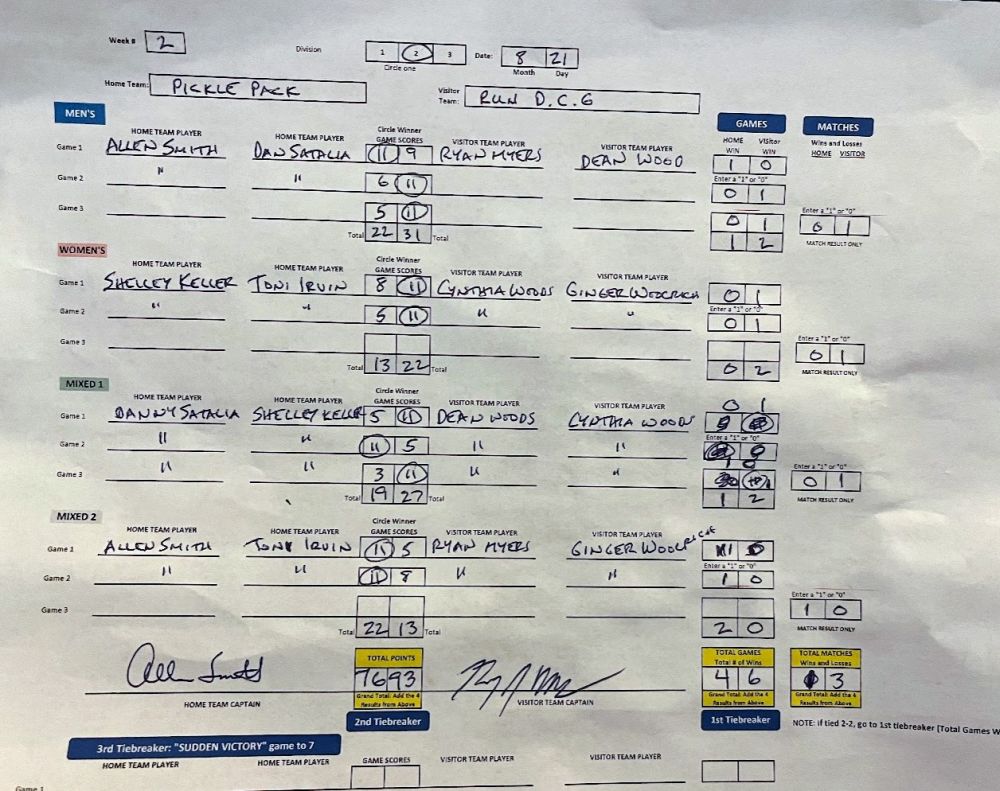 Week # 2 Division 1 2 3 Date: 8 21
Circle one Month Day
Home Team: PICKLE PACK Visitor Team: RUN D.C.G
MEN'S GAMES MATCHES
HOME TEAM PLAYER HOME TEAM PLAYER Circle Winner GAME SCORES VISITOR TEAM PLAYER VISITOR TEAM PLAYER HOME WIN Visitor WIN Wins and Losses HOME VISITOR
Game 1 ALLEN SMITH DAN SATALIA 11 9 RYAN MYERS DEAN WOOD 1 0
Enter a "1" or "0"
Game 2 " " 6 11 0 1
Game 3 5 11 0 1 Enter a "1" or "0" 0 1
Total 22 31 Total 1 2 MATCH RESULT ONLY
WOMEN'S
HOME TEAM PLAYER HOME TEAM PLAYER Circle Winner GAME SCORES VISITOR TEAM PLAYER VISITOR TEAM PLAYER
Game 1 SHELLEY KELLER TONI IRVIN 8 11 CYNTHIA WOODS GINGER 0 1
Enter a "1" or "0"
Game 2 " " 5 11 " " 0 1
Game 3 Enter a "1" or "0" 0 1
Total 13 22 Total 0 2 MATCH RESULT ONLY
MIXED 1
HOME TEAM PLAYER HOME TEAM PLAYER Circle Winner GAME SCORES VISITOR TEAM PLAYER VISITOR TEAM PLAYER 0 1
Game 1 DANNY SATALIA SHELLEY KELLER 5 11 DEAN WOODS CYNTHIA WOODS
Enter a "1" or "0"
Game 2 " " 11 5 " " 1 0
Game 3 " " 3 11 " " Enter a "1" or "0" 0 1
Total 19 27 Total 1 2 MATCH RESULT ONLY
MIXED 2
HOME TEAM PLAYER HOME TEAM PLAYER Circle Winner GAME SCORES VISITOR TEAM PLAYER VISITOR TEAM PLAYER
Game 1 ALLEN SMITH TONI IRVIN 11 5 RYAN MYERS GINGER 1 0
Enter a "1" or "0"
Game 2 " " 11 8 " " 1 0
Game 3 Enter a "1" or "0" 1 0
Total 22 13 Total 2 0 MATCH RESULT ONLY
TOTAL POINTS TOTAL GAMES Total # of Wins TOTAL MATCHES Wins and Losses
Allen Smith 76 93 4 6 3
HOME TEAM CAPTAIN Grand Total: Add the 4 Results from Above VISITOR TEAM CAPTAIN Grand Total: Add the 4 Results from Above Grand Total: Add the 4 Results from Above
2nd Tiebreaker 1st Tiebreaker NOTE: if tied 2-2, go to 1st tiebreaker (Total Games W
3rd Tiebreaker: "SUDDEN VICTORY" game to 7
HOME TEAM PLAYER HOME TEAM PLAYER GAME SCORES VISITOR TEAM PLAYER VISITOR TEAM PLAYER
Game 1